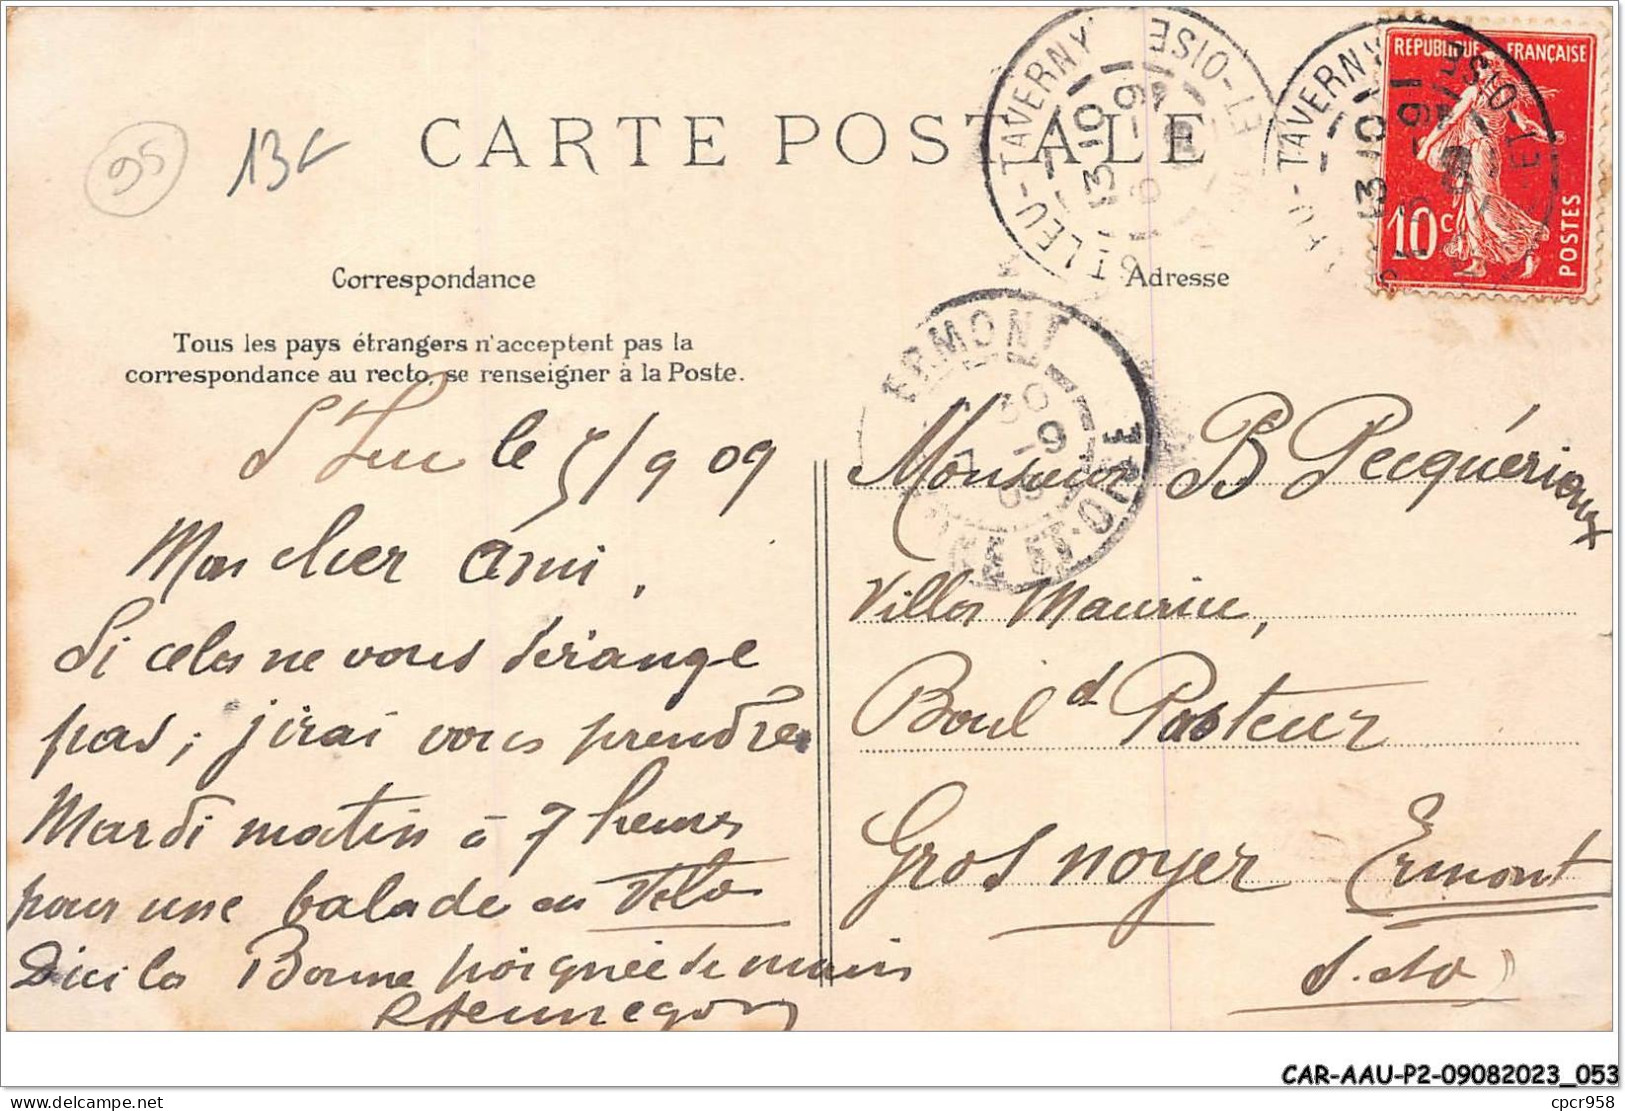 95
13€
CARTE POSTALE
ST LEU-TAVERNY
SEINE-ET-OISE
13 10
6 -9
09
REPUBLIQUE FRANÇAISE
10c
POSTES
Correspondance
Adresse
Tous les pays étrangers n'acceptent pas la
correspondance au recto, se renseigner à la Poste.
ERMONT
SEINE-ET-OISE
S' Leu le 5/9 09
Mon cher Ami,
Si cela ne vous dérange
pas, j'irai vous prendre
Mardi matin à 7 heures
pour une balade en Vélo
D'ici la Bonne poignée de main
Monsieur B Pecquérioux
Villa Maurice,
Boul d Pasteur
Gros noyer Ermont
S. et O
CAR-AAU-P2-09082023_053
delcampe.net
cpcr958